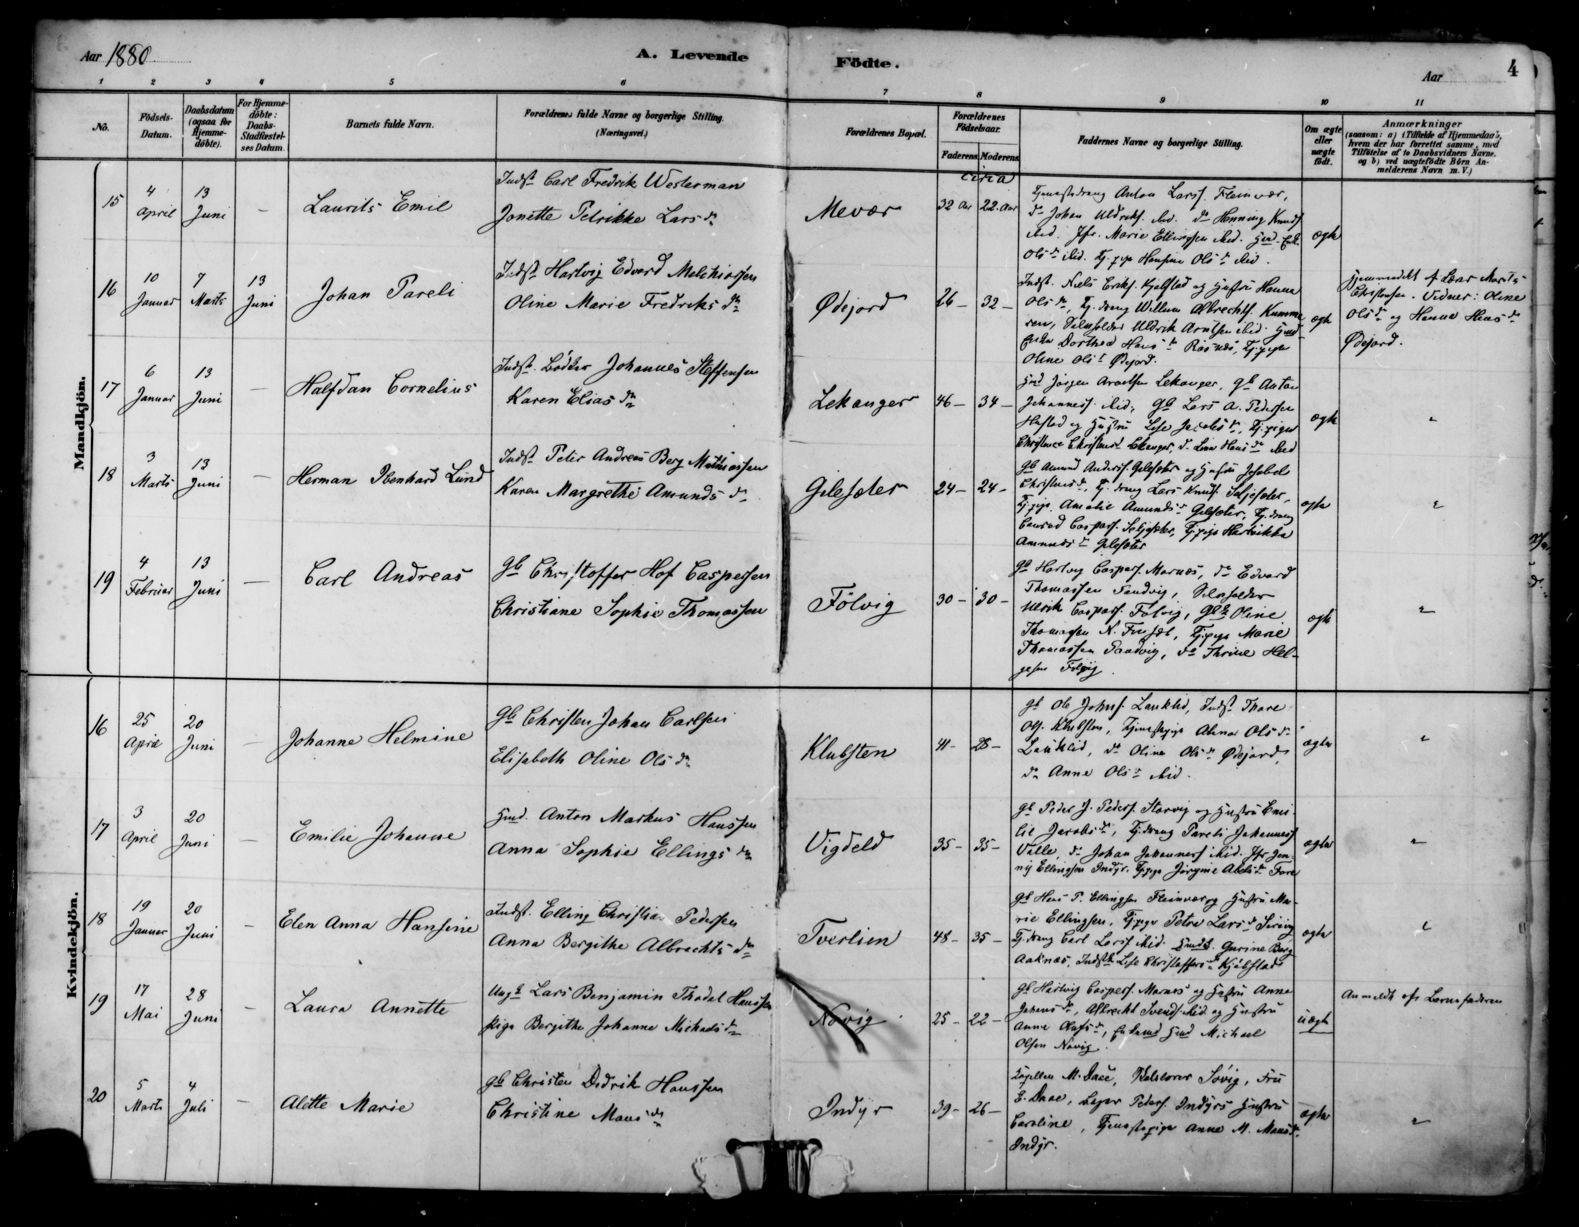 Aar 1880
A. Levende Födte.
Aar
4
1 2 3 4 5 6 7 8 9 10 11
No.
Födsels-
Datum.
Daabsdatum
(ogsaa for
Hjemme-
döbte).
For Hjemme-
döbte:
Daabs-
Stadfæstel-
ses Datum.
Barnets fulde Navn.
Forældrenes fulde Navne og borgerlige Stilling.
(Næringsvei.)
Forældrenes Bopæl.
Forældrenes
Födselsaar.
Faderens. Moderens.
Faddernes Navne og borgerlige Stilling.
Om ægte
eller
uægte
födt.
Anmærkninger
(saasom: a) i Tilfælde af Hjemmedaab,
hvem der har forrettet samme, med
Tilföielse af to Daabsvidners Navne,
og b) ved uægtefödte Börn An-
melderens Navn m. V.)
Mandkjön.
15
4
April
13
Juni
–
Laurits Emil
Indst. Carl Fredrik Westerman
Jonette Petrikke Larsdr
Mevær
circa
32 Aar 22 Aar
Tjenestedreng Anton Larss. Fleinvær,
do Johan Uldriks. ibid. do Henning Knuds.
ibid. Jfr. Marie Ellingsen ibid.
Olsdr ibid. Tj.pige Hansine Olsdr ibid.
ægte
16
10
Januar
7
Marts
13
Juni
Johan Pareli
Indst. Hartvig Edvard Melchiorsen
Oline Marie Fredriksdr
Ødejord
26 – 32 –
Indst. Niels Eriks. Kjelstad og Hustru Hanna
Olsdr, Tj.dreng Willum Albrechts.
Uldrik Arntsen ibid.
Dorthea Hansdr Tj.pige
Oline Olsdr Ødejord.
ægte
Hjemmedøbt af Lars Morits
Christensen. Vidner: Oline
Olsdr og Hanna Hansdr
Ødejord.
17
6
Januar
13
Juni
–
Halfdan Cornelius
Indst. Bødker Johannes Steffensen
Karen Eliasdr
Lekanger
46 – 34 –
Jørgen Arntsen Lekanger, Gb Anton
Johanness. ibid., Gb Lars A. Pedersen
og Hustru Lise Jacobsdr, Tj.piger
Lekanger, do Lina Hansdr ibid
ægte
"
18
3
Marts
13
Juni
–
Herman Ibenhard Lund
Indst. Peter Andreas Berg Mathiassen
Karen Margrethe Amundsdr
Gilesæter
24 – 24 –
Gb Amund Anderss. Gilesæter og Hustru
Tj.dreng Lars Knuds. Seljesæter,
Tj.pige Amalie Amundsdr Gilesæter, Tj.dreng
Conrad Caspers. Seljesæter, Tj.pige Hartvikka
Amundsdr Gilesæter
ægte
"
19
4
Februar
13
Juni
–
Carl Andreas
Gb Christoffer Hof Caspersen
Christiane Sophie Thomassen
Fölvig
30 – 30 –
Gb Hartvig Caspers. Marnæs, do Edvard
Thomassen Sandvig,
Ulrik Caspers. Fölvig, Oline
Thomassen N. Tj.pige Marie
Thomassen Sandvig, do Thrine Hel-
gesen Fölvig.
ægte
"
Kvindekjön.
16
25
April
20
Juni
–
Johanne Helmine
Gb Christen Johan Carlsen
Elisabeth Oline Olsdr
Klubsten
41 – 28 –
Gb Ole Johns. Lauklid, Indst. Thore
Ols. Klubsten, Tjenestepige Olsdr
Lauklid, do Oline Olsdr Ødejord,
do Anne Olsdr ibid.
ægte
"
17
3
April
20
Juni
–
Emilie Johanne
Hmd. Anton Markus Hanssen
Anna Sophie Ellingsdr
Vigdeld
35 – 35 –
Gb Peder J. Peders. Storvig og Hustru Emi-
lie Jacobsdr, Tj.dreng Pareli Johanness.
Valle, do Johan Johanness. ibid. Jfr Jen-
ny Ellingsen Indyr. Tj.pige Fore
ægte
"
18
19
Januar
20
Juni
–
Elen Anna Hansine
Indst. Elling Christian Pedersen
Anna Bergitke Albrechtsdr
Tverlien
48 – 35 –
Gb Hans P. Ellingsen Fleinvær og Hustru Ma-
rie Ellingsen, Tj.pige Petra Larsdr
Tj.dreng Carl Larss. ibid. Gurine Berg
Aaknæs, Lise Christoffersdr Kjelstad
ægte
"
19
17
Mai
28
Juni
–
Laura Annette
Ungk. Lars Benjamin Thodal Hanssen
Pige Bergithe Johanna Michaelsdr
Nøvig
25 – 22 –
Gb Hartvig Caspers. Marnæs og Hustru Anne
Jakobsdr, Albrecht Svends. ibid og Hustru
Anne Olafsdr, Hmd Michael
Olsen Nøvig.
uægte
Anmeldt af Barnefaderen
20
5
Marts
4
Juli
–
Alette Marie
Gb Christen Didrik Hanssen
Christine Monsdr
Indyr
39 – 26 –
Kapellan M. Daae, Søvig, Fru
E. Daae, Peders. Indyrs Hustru
Caroline, Tjenestepige Anne M. Monsdr,
Indyr.
ægte
"